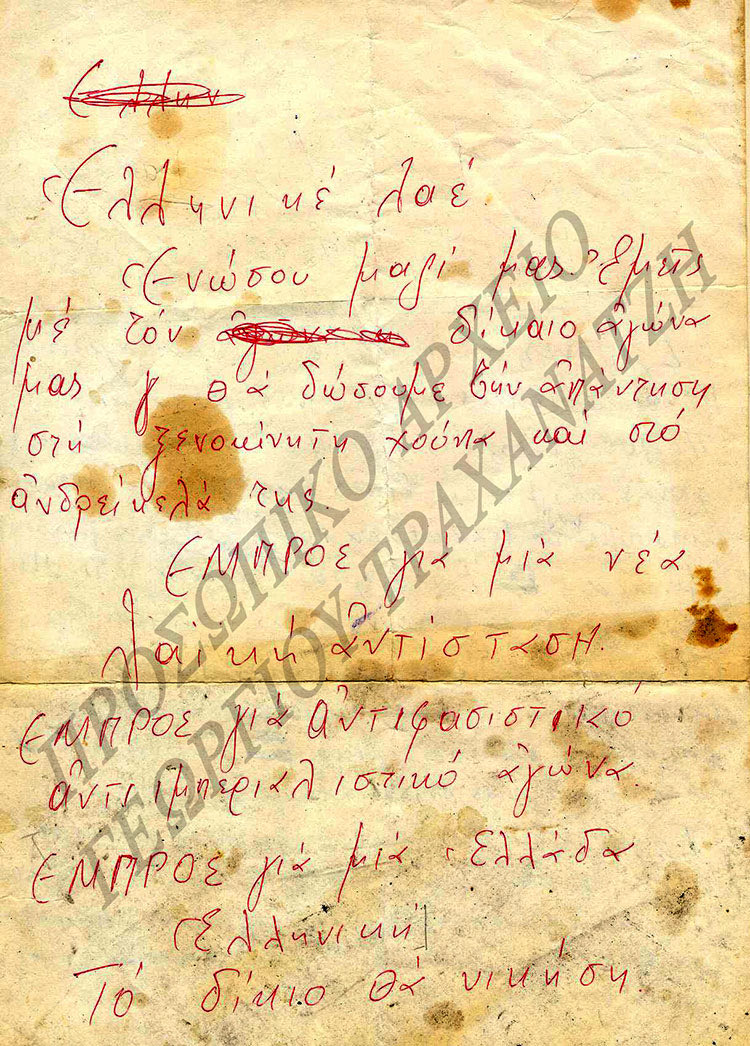 Ἑλληνικέ λαέ.
Ἑνώσου μαζί μας. Ἐμεῖς
μέ τόν δίκαιο ἀγώνα
μας θά δώσουμε τήν ἀπάντηση
στή ξενοκίνητη χούντα καί στά
ἀνδρείκελά της.
ΕΜΠΡΟΣ γιά μιά νέα
λαϊκή ἀντίσταση.
ΕΜΠΡΟΣ γιά ἀντιφασιστικό
ἀντιιμπεριαλιστικό ἀγώνα.
ΕΜΠΡΟΣ γιά μιά Ἑλλάδα
Ἑλληνική
Τό δίκιο θά νικήση.
ΠΡΟΣΩΠΙΚΟ ΑΡΧΕΙΟ
ΓΕΩΡΓΙΟΥ ΤΡΑΧΑΝΑΤΖΗ